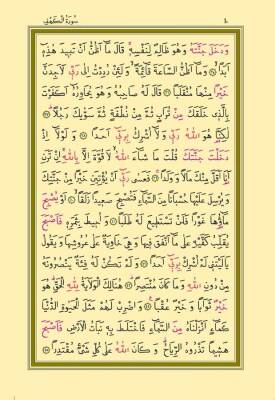 سُورَةُ الْكَهْفِ
وَدَخَلَ جَنَّتَهُ وَهُوَ ظَالِمٌ لِنَفْسِهِ قَالَ مَا أَظُنُّ أَنْ تَبِيدَ هٰذِهِ
أَبَدًا وَمَا أَظُنُّ السَّاعَةَ قَائِمَةً وَلَئِنْ رُدِدْتُ إِلٰى رَبِّي لَأَجِدَنَّ
خَيْرًا مِنْهَا مُنْقَلَبًا قَالَ لَهُ صَاحِبُهُ وَهُوَ يُحَاوِرُهُ أَكَفَرْتَ
بِالَّذِي خَلَقَكَ مِنْ تُرَابٍ ثُمَّ مِنْ نُطْفَةٍ ثُمَّ سَوّٰيكَ رَجُلًا
لٰكِنَّا هُوَ اللّٰهُ رَبِّي وَلَا أُشْرِكُ بِرَبِّي أَحَدًا وَلَوْلَا إِذْ
دَخَلْتَ جَنَّتَكَ قُلْتَ مَا شَاءَ اللّٰهُ لَا قُوَّةَ إِلَّا بِاللّٰهِ إِنْ تَرَنِ
أَنَا أَقَلَّ مِنْكَ مَالًا وَوَلَدًا فَعَسٰى رَبِّي أَنْ يُؤْتِيَنِ خَيْرًا مِنْ جَنَّتِكَ
وَيُرْسِلَ عَلَيْهَا حُسْبَانًا مِنَ السَّمَاءِ فَتُصْبِحَ صَعِيدًا زَلَقًا أَوْ يُصْبِحَ
مَاؤُهَا غَوْرًا فَلَنْ تَسْتَطِيعَ لَهُ طَلَبًا وَأُحِيطَ بِثَمَرِهِ فَأَصْبَحَ
يُقَلِّبُ كَفَّيْهِ عَلٰى مَا أَنْفَقَ فِيهَا وَهِيَ خَاوِيَةٌ عَلٰى عُرُوشِهَا وَيَقُولُ
يَا لَيْتَنِي لَمْ أُشْرِكْ بِرَبِّي أَحَدًا وَلَمْ تَكُنْ لَهُ فِئَةٌ يَنْصُرُونَهُ
مِنْ دُونِ اللّٰهِ وَمَا كَانَ مُنْتَصِرًا هُنَالِكَ الْوَلَايَةُ لِلّٰهِ الْحَقِّ هُوَ
خَيْرٌ ثَوَابًا وَخَيْرٌ عُقْبًا وَاضْرِبْ لَهُمْ مَثَلَ الْحَيٰوةِ الدُّنْيَا
كَمَاءٍ أَنْزَلْنَاهُ مِنَ السَّمَاءِ فَاخْتَلَطَ بِهِ نَبَاتُ الْأَرْضِ فَأَصْبَحَ
هَشِيمًا تَذْرُوهُ الرِّيَاحُ وَكَانَ اللّٰهُ عَلٰى كُلِّ شَيْءٍ مُقْتَدِرًا